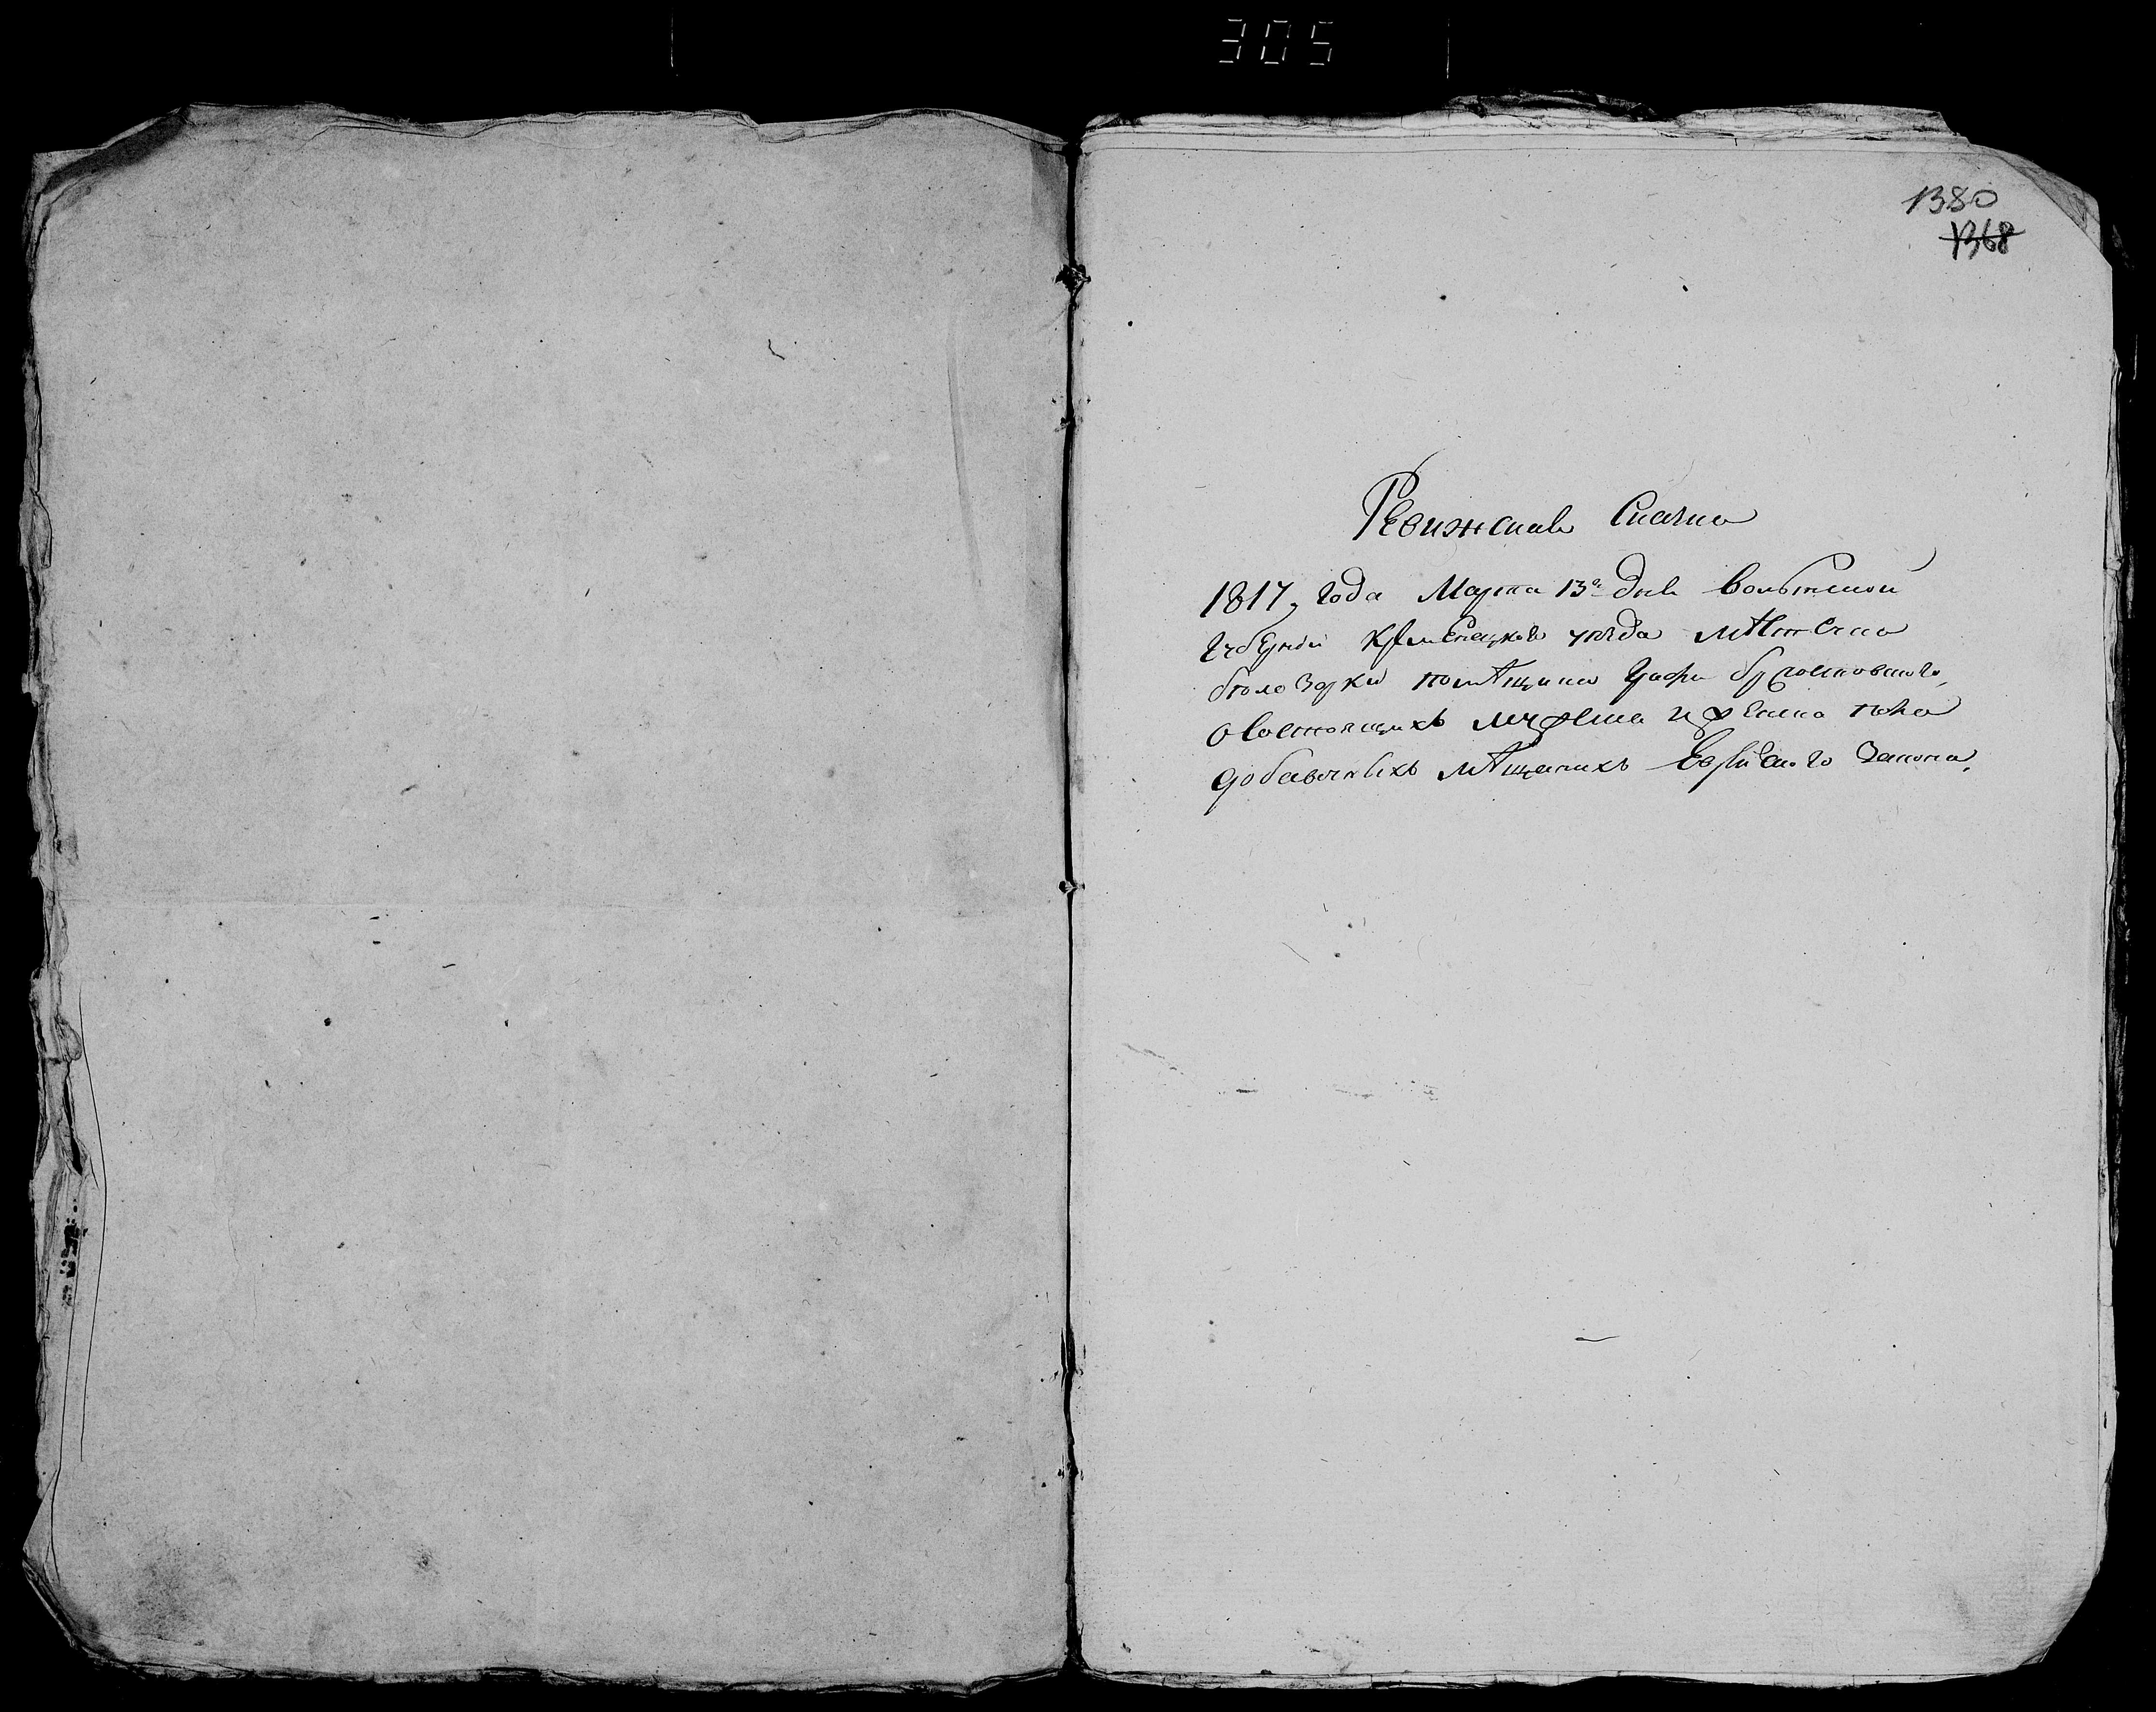 305
1380
1368
Ревижская Сказка
1817, года Марта 13го дня Волынской
Губернїи Кременецкаго уезда мѣстечка
бѣлозорки помѣщика Графа
о состоящихъ мужеска и женска пола
добавочныхъ мѣщанихъ Еврейскаго Закона.